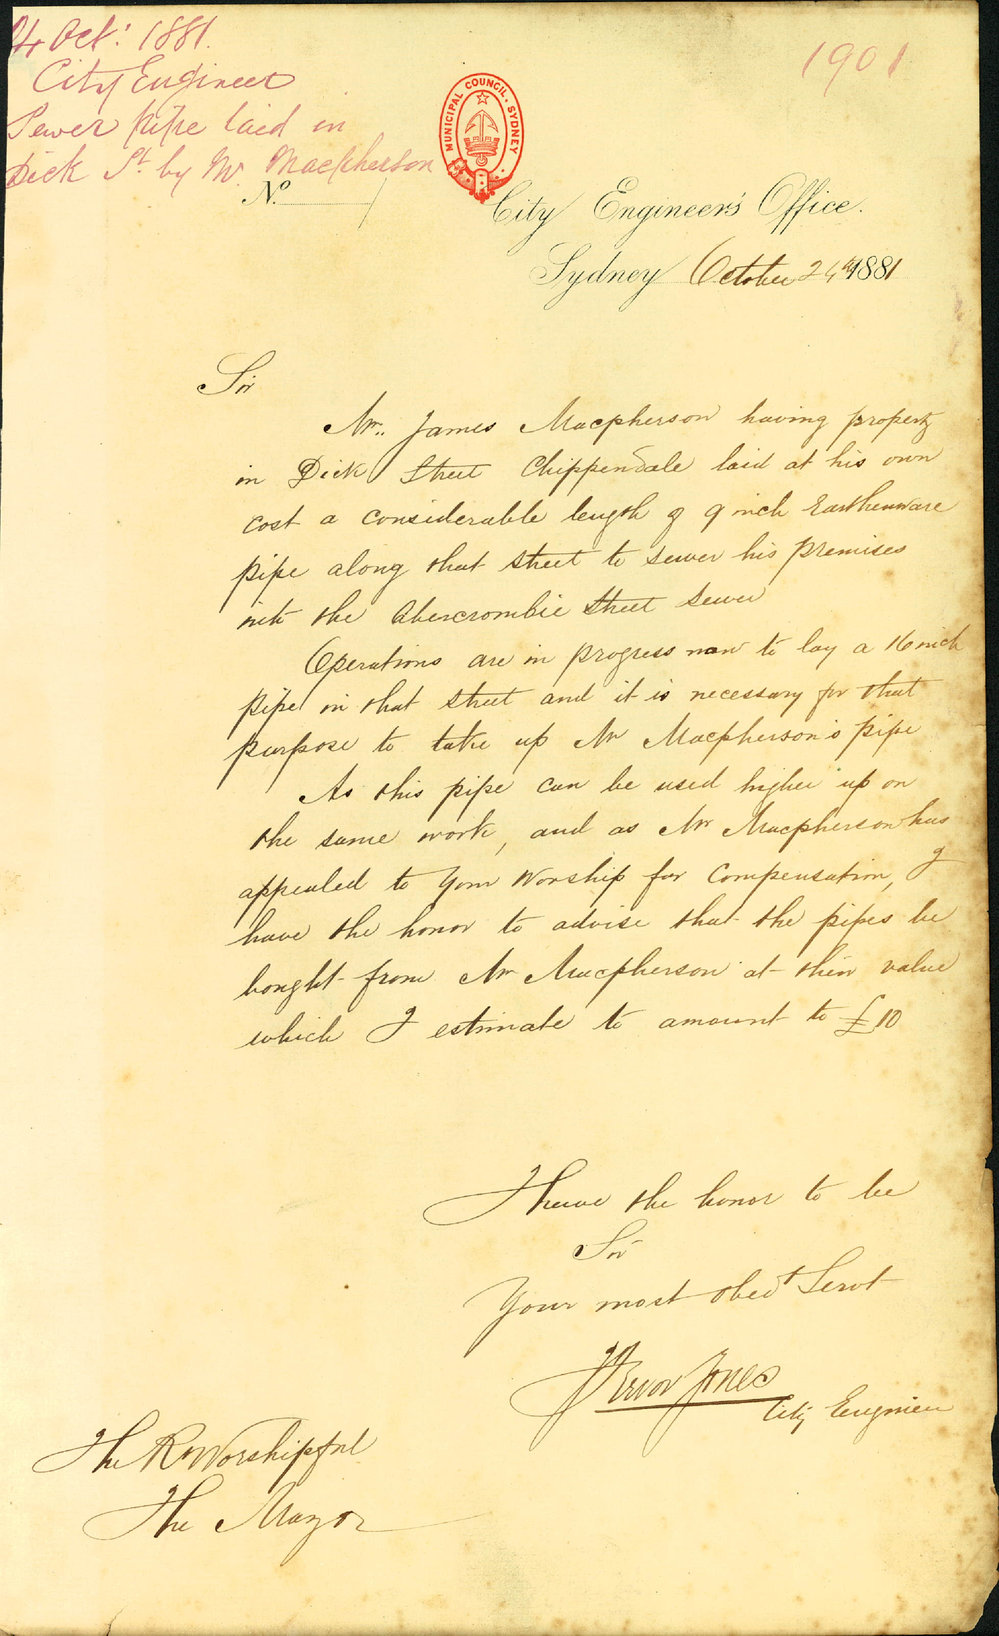 24 Oct: 1881.
City Engineer
Sewer pipe laid in
Dick St. by Mr. Macpherson
1901
MUNICIPAL COUNCIL. SYDNEY
No.
City Engineer's Office.
Sydney October 24th 1881
Sir
Mr. James Macpherson having property
in Dick Street Chippendale laid at his own
cost a considerable length of 9 inch Earthenware
pipe along that street to sewer his premises
into the Abercrombie Street Sewer
Operations are in progress now to lay a 16 inch
pipe in that street and it is necessary for that
purpose to take up Mr Macpherson's pipe
As this pipe can be used higher up on
the same work, and as Mr Macpherson has
appealed to Your Worship for Compensation, I
have the honor to advise that the pipes be
bought from Mr Macpherson at their value
which I estimate to amount to £10
I have the honor to be
Sir
Your most obedt Servt
Trevor Jones
City Engineer
The Rt Worshipful
The Mayor